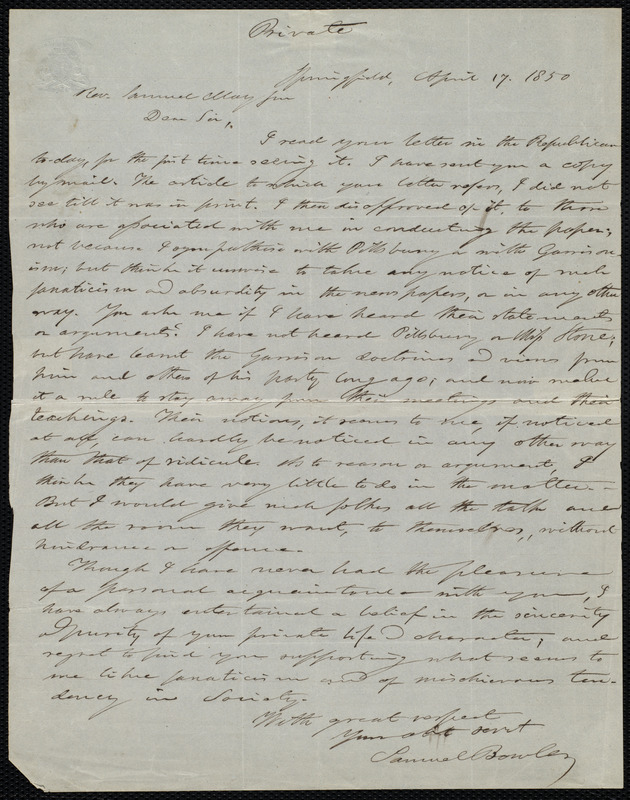 Private
Springfield, April 17. 1850
Rev. Samuel May Jun
Dear Sir,
I read your letter in the Republican
to-day, for the first time seeing it. I have sent you a copy
by mail. The article to which your letter refers, I did not
see till it was in print. I then disapproved of it, to those
who are associated with me in conducting the paper,
not because I sympathise with Pillsbury or with Garrison-
ism; but think it unwise to take any notice of such
fanaticism and absurdity in the newspapers, or in any other
way. You ask me if I have heard their statements
or arguments? I have not heard Pillsbury or Miss Stone;
but have learnt the Garrison doctrines and views from
him and others of his party long ago; and now make
it a rule to stay away from their meetings and their
teachings. Their notions, it seems to me, if noticed
at all, can hardly be noticed in any other way
than that of ridicule. As to reason or argument, I
think they have very little to do in the matter.
But I would give such folks all the talk and
all the room they want, to themselves, without
hindrance or offence.
Though I have never had the pleasure
of a personal acquaintance with you, I
have always entertained a belief in the sincerity
& purity of your private life & character; and
regret to find you supporting what seems to
me like fanaticism and of mischievous ten-
dency in Society.
With great respect
Your obt servt
Samuel Bowles